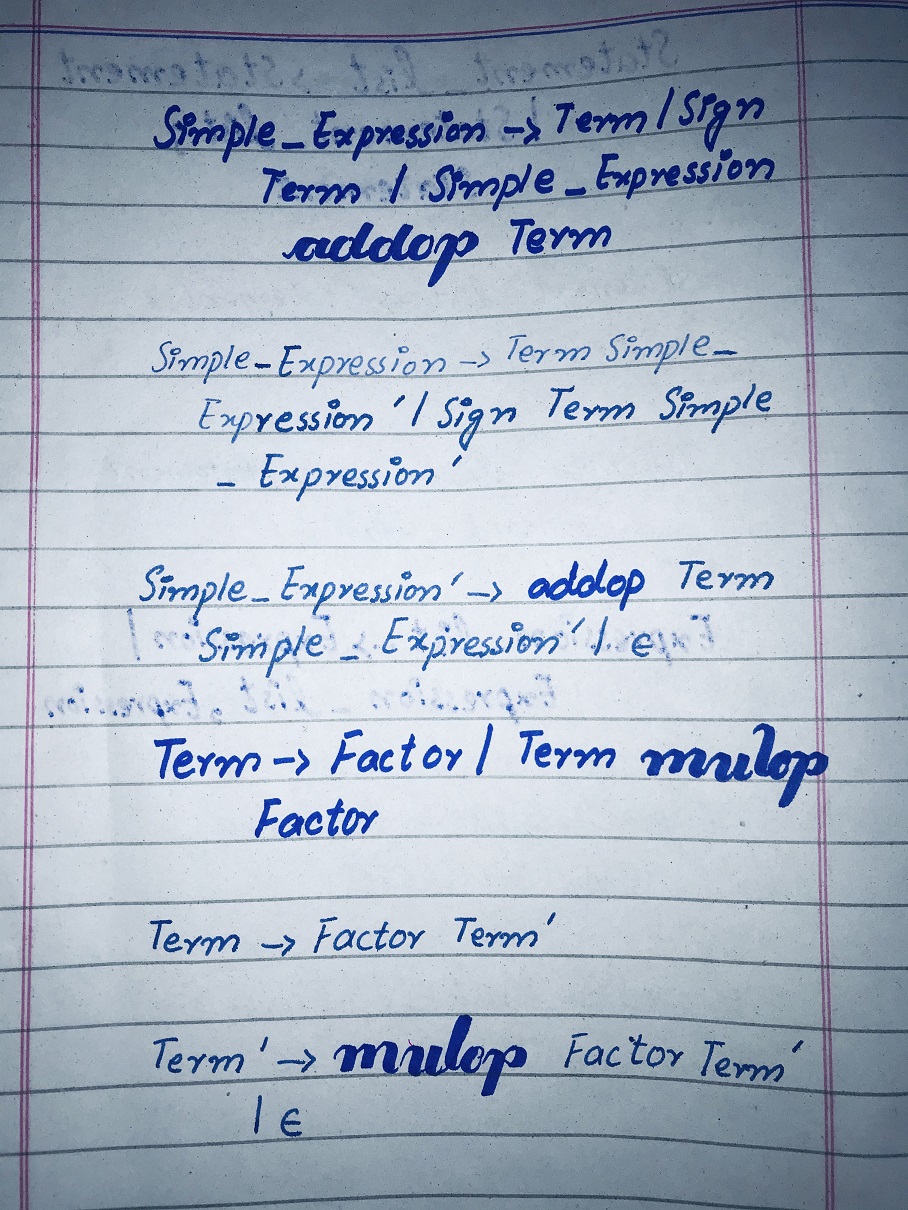 Simple_Expression → Term / Sign
Term / Simple_Expression
addop Term
Simple_Expression → Term Simple_
Expression' / Sign Term Simple
_ Expression'
Simple_Expression' → addop Term
Simple_Expression' / ϵ
Term → Factor / Term mulop
Factor
Term → Factor Term'
Term' → mulop Factor Term'
| ϵ